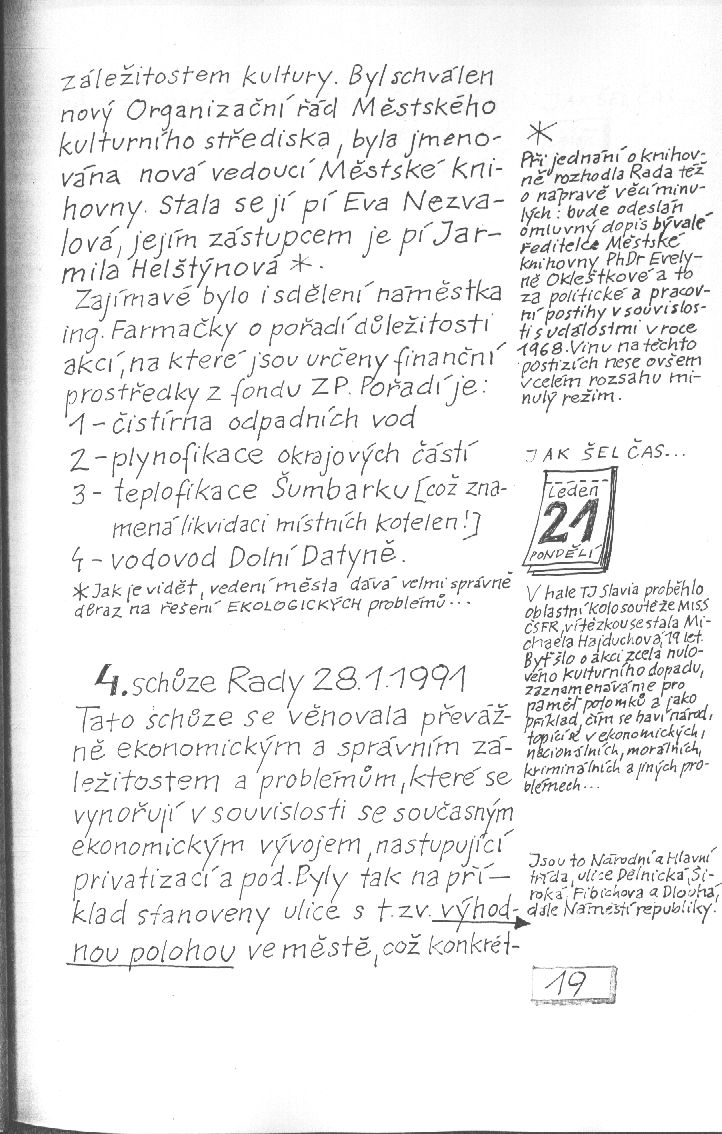 záležitostem kultury. Byl schválen
nový Organizační řád Městského
kulturního střediska, byla jmeno-
vána nová vedoucí Městské kni-
hovny. Stala se jí pí Eva Nezva-
lová, jejím zástupcem je pí Jar-
mila Helštýnová *.
Zajímavé bylo i sdělení náměstka
ing. Farmačky o pořadí důležitosti
akcí, na které jsou určeny finanční
prostředky z fondu ZP. Pořadí je:
1 - čistírna odpadních vod
2 - plynofikace okrajových částí
3 - teplofikace Šumbarku [což zna-
mená likvidaci místních kotelen!]
4 - vodovod Dolní Datyně.
* Jak je vidět, vedení města dává velmi správně
důraz na řešení EKOLOGICKÝCH problémů...
4. schůze Rady 28.1.1991
Tato schůze se věnovala převáž-
ně ekonomickým a správním zá-
ležitostem a problémům, které se
vynořují v souvislosti se současným
ekonomickým vývojem, nastupující
privatizací a pod. Byly tak na pří-
klad stanoveny ulice s t.zv. výhod-
nou polohou ve městě, což konkrét-
*
Při jednání o knihov-
ně rozhodla Rada též
o nápravě věcí minu-
lých: bude odeslán
omluvný dopis bývalé
ředitelce Městské
knihovny PhDr Evely-
ně Oklešťkové a to
za politické a pracov-
ní postihy v souvislos-
ti s událostmi v roce
1968. Vinu na těchto
postizích nese ovšem
v celém rozsahu mi-
nulý režim.
JAK ŠEL ČAS...
Leden
21
PONDĚLÍ
V hale TJ Slavia proběhlo
oblastní kolo soutěže MISS
ČSFR, vítězkou se stala Mi-
chaela Hajduchová, 19 let.
Byť šlo o akci zcela nulo-
vého kulturního dopadu,
zaznamenáváme pro
paměť potomků a jako
příklad, čím se baví národ,
topící se v ekonomických,
nacionálních, morálních,
kriminálních a jiných pro-
blémech...
Jsou to Národní a Hlavní
třída, ulice Dělnická, Ši-
roká, Fibichova a Dlouhá,
dále Náměstí republiky.
19